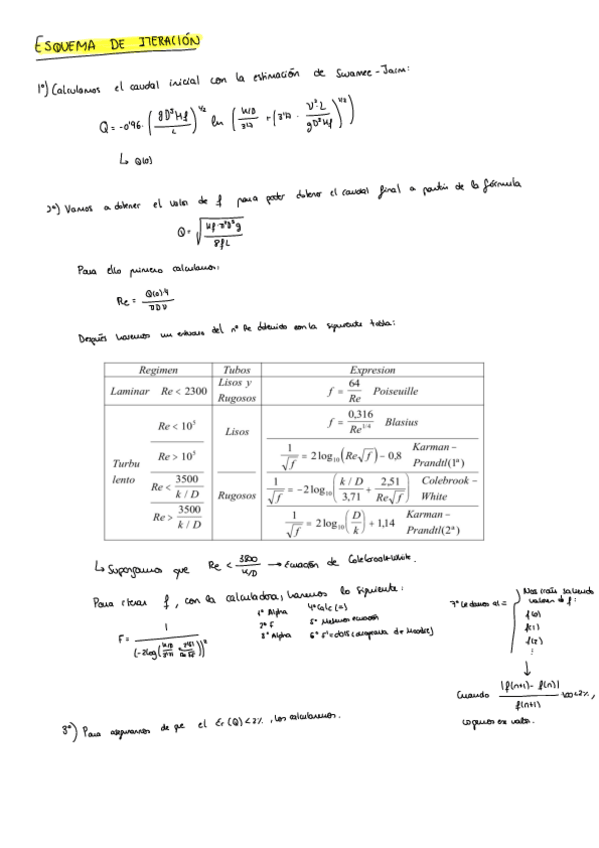 ESQUEMA DE ITERACIÓN
1º) Calculamos el caudal inicial con la estimación de Swamee-Jain:
Q = -0'96 · (gD³Hf / L)^1/2 ln (k/D / 3'7 + (3'17 · ν²·L / gD³Hf)^1/2)
↳ Q(0)
2º) Vamos a obtener el valor de f para poder obtener el caudal final a partir de la fórmula
Q = √(Hf·π²D⁵g / 8fL)
Para ello primero calculamos:
Re = Q(0)·4 / πDν
Después haremos un del nº Re obtenido con la siguiente tabla:
Regimen Tubos Expresion
Laminar Re < 2300 Lisos y Rugosos f = 64/Re Poiseuille
Turbulento Re < 10⁵ Lisos f = 0,316/Re^1/4 Blasius
Re > 10⁵ 1/√f = 2 log₁₀(Re√f) − 0,8 Karman – Prandtl(1ª)
Re < 3500/(k/D) Rugosos 1/√f = −2 log₁₀((k/D)/3,71 + 2,51/(Re√f)) Colebrook – White
Re > 3500/(k/D) 1/√f = 2 log₁₀(D/k) + 1,14 Karman – Prandtl(2ª)
↳ Supongamos que Re < 3500/(k/D) → Ecuación de Colebrook-White.
Para iterar f, con la calculadora, haremos lo siguiente:
F = 1 / (-2log(k/D / 3'71 + 2'51 / Re·√F))²
1º Alpha 4º Calc (=)
2º F 5º Metemos ecuación
3º Alpha 6º F = 0'015 (diagrama de Moody)
7º Le damos al =
Nos irán saliendo valores de f:
f(0)
f(1)
f(2)
⋮
↓
Cuando |f(n+1) - f(n)| / f(n+1) ·100 < 2%,
cogemos ese valor.
3º) Para asegurarnos de que el Er(Q) < 2%, los calculamos.